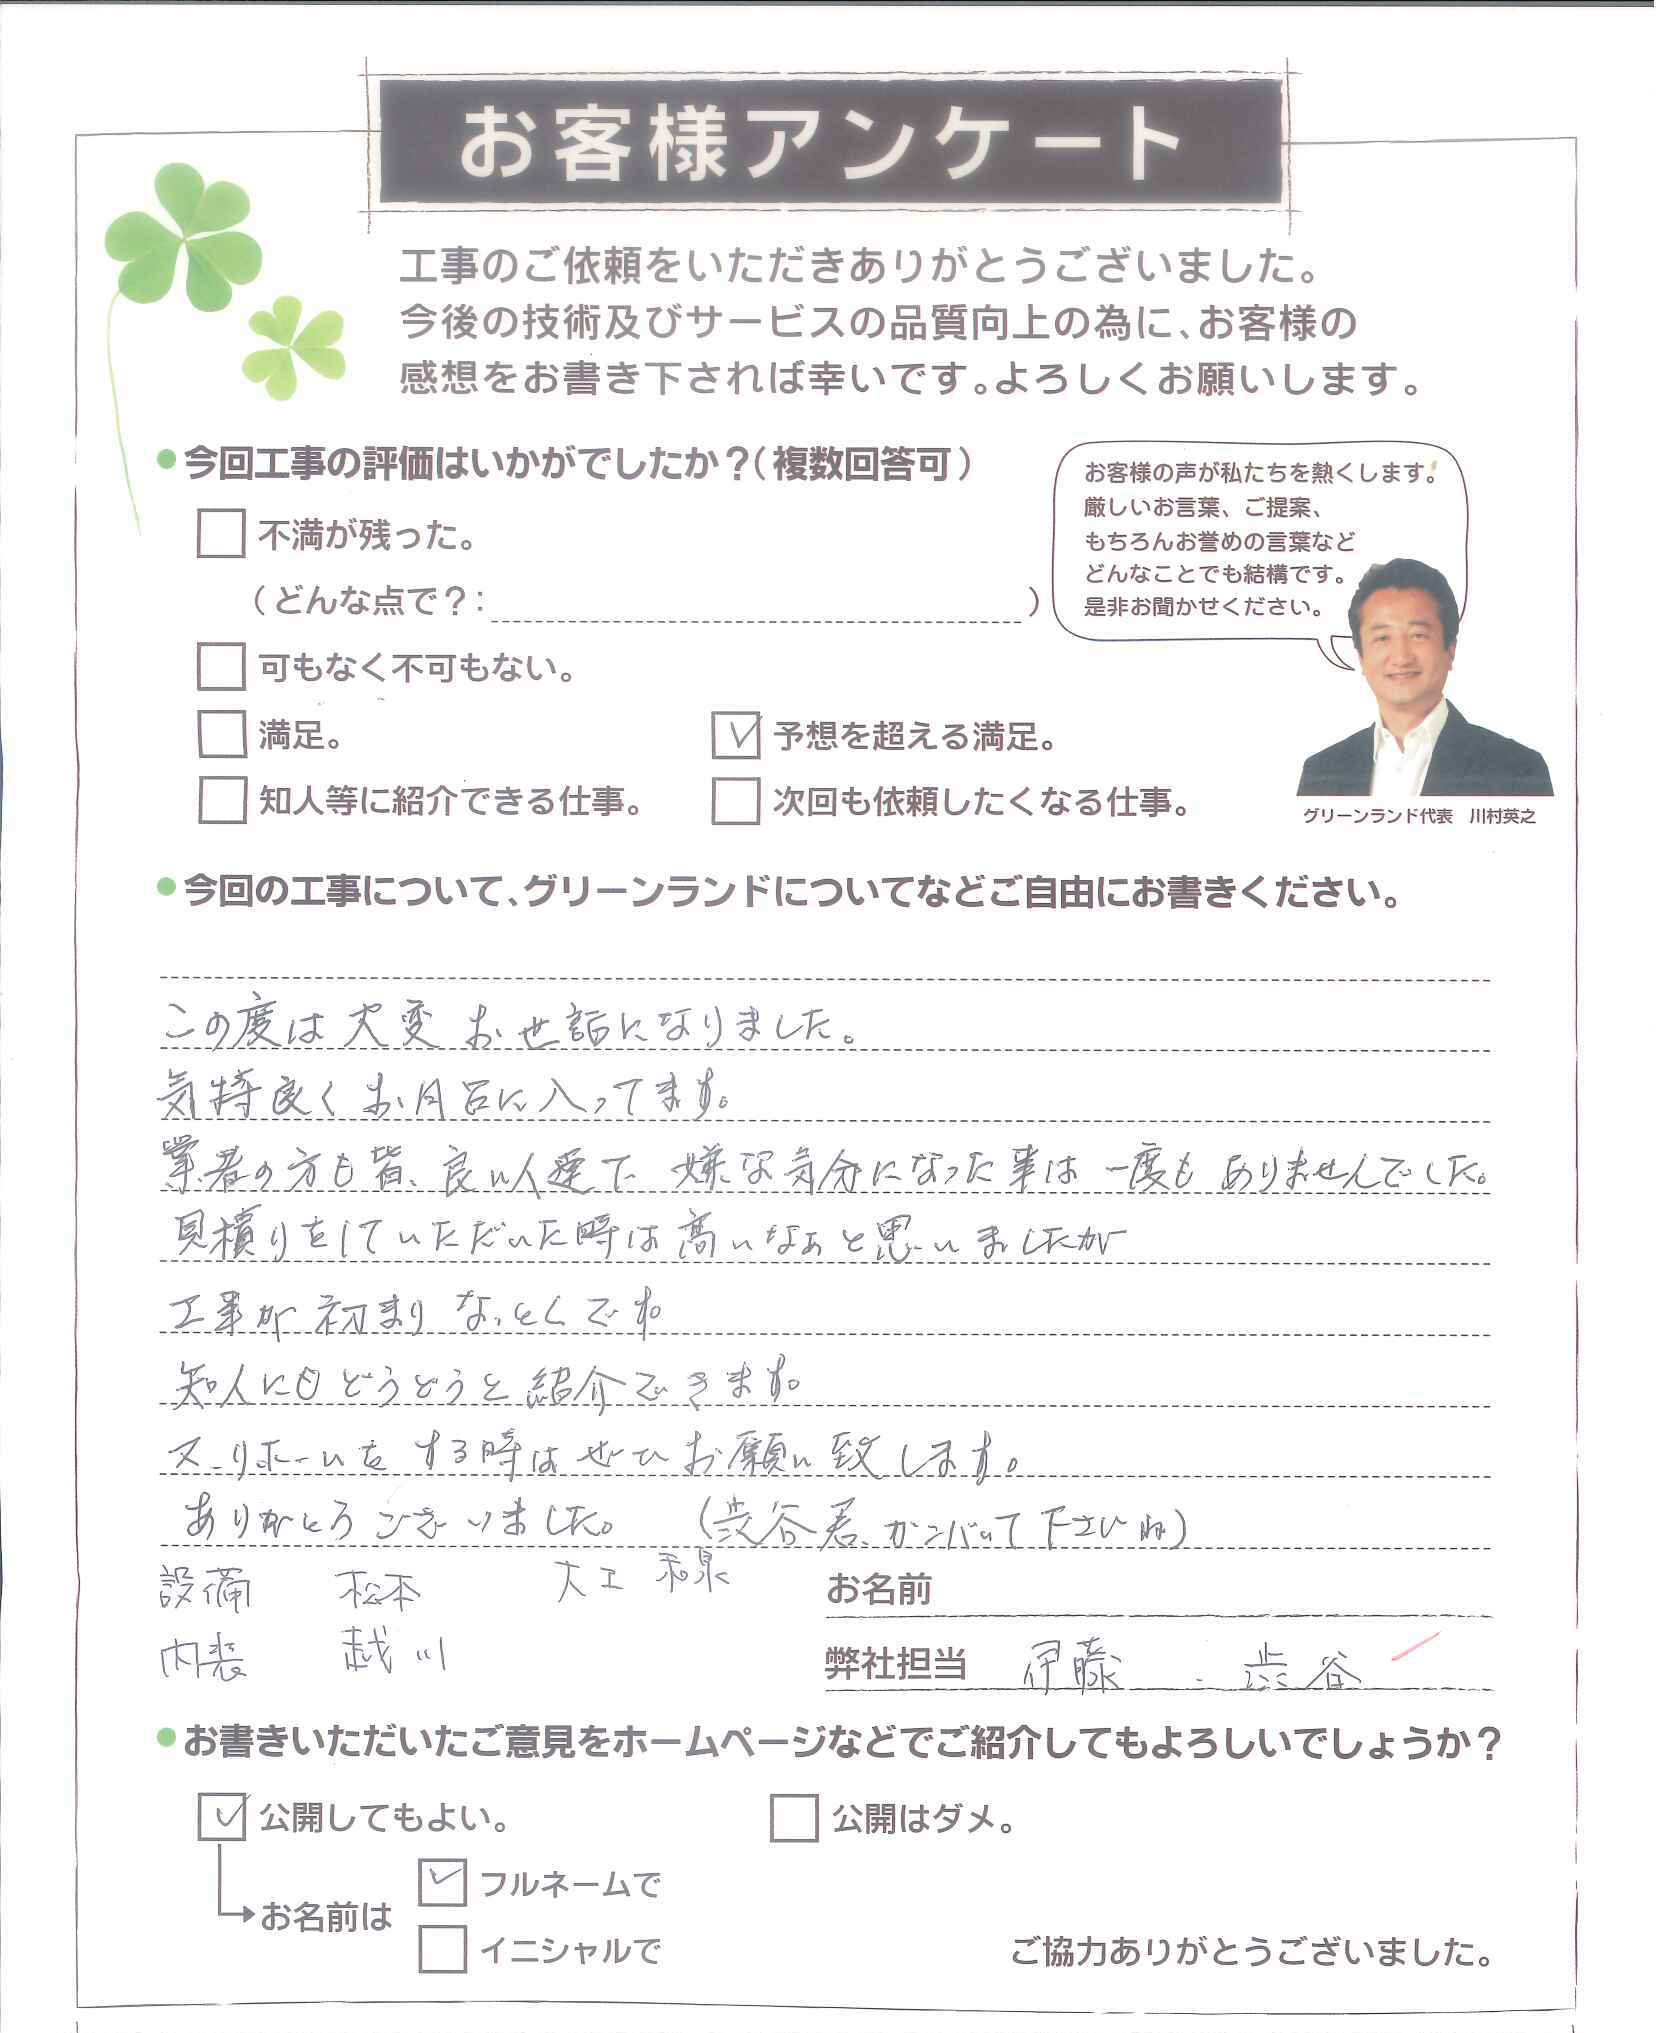 お客様アンケート
工事のご依頼をいただきありがとうございました。
今後の技術及びサービスの品質向上の為に、お客様の
感想をお書き下されば幸いです。よろしくお願いします。
今回工事の評価はいかがでしたか？（複数回答可）
不満が残った。
（どんな点で？： ）
可もなく不可もない。
満足。 予想を超える満足。
知人等に紹介できる仕事。 次回も依頼したくなる仕事。
お客様の声が私たちを熱くします。
厳しいお言葉、ご提案、
もちろんお誉めの言葉など
どんなことでも結構です。
是非お聞かせください。
グリーンランド代表　川村英之
今回の工事について、グリーンランドについてなどご自由にお書きください。
この度は大変お世話になりました。
気持良くお風呂に入ってます。
業者の方も皆、良い人達で嫌な気分になった事は一度もありませんでした。
見積りをしていただいた時は高いなぁと思いましたが
工事が初まりなっとくです。
知人にもどうどうと紹介できます。
又、リホームをする時はぜひお願い致します。
ありがとうございました。（渋谷君、ガンバッて下さいね）
設備　松本　大工　和泉
内装　越川
お名前
弊社担当　伊藤・渋谷
お書きいただいたご意見をホームページなどでご紹介してもよろしいでしょうか？
公開してもよい。 公開はダメ。
お名前は
フルネームで
イニシャルで
ご協力ありがとうございました。